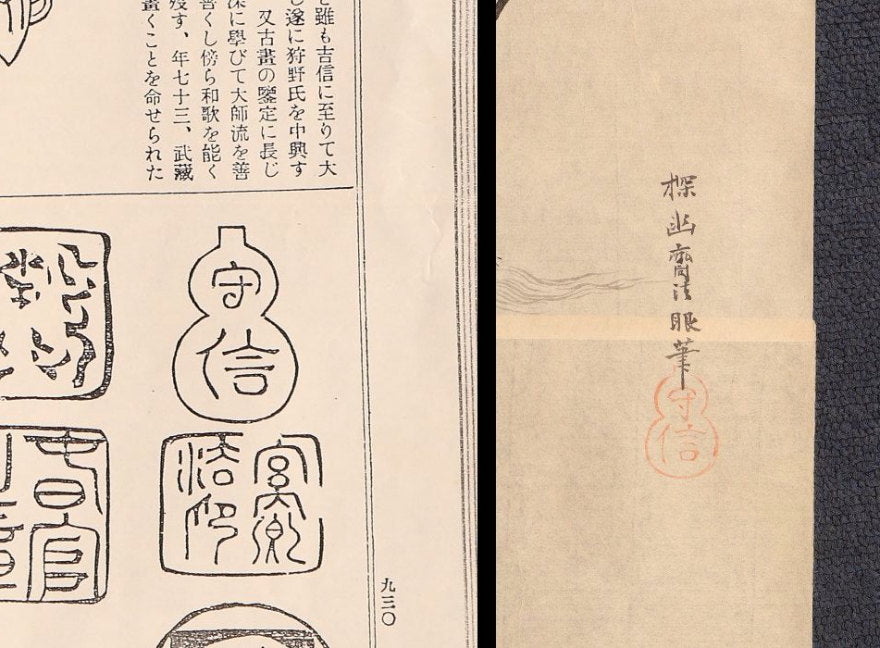 雖も吉信に至りて大
し遂に狩野氏を中興す
又古畫の鑒定に長じ
深に學びて大師流を善
善くし傍ら和歌を能く
歿す、年七十三、武藏
畫くことを命せられた
守信
宮内卿
法印
九三〇
探幽齋法眼筆
守信